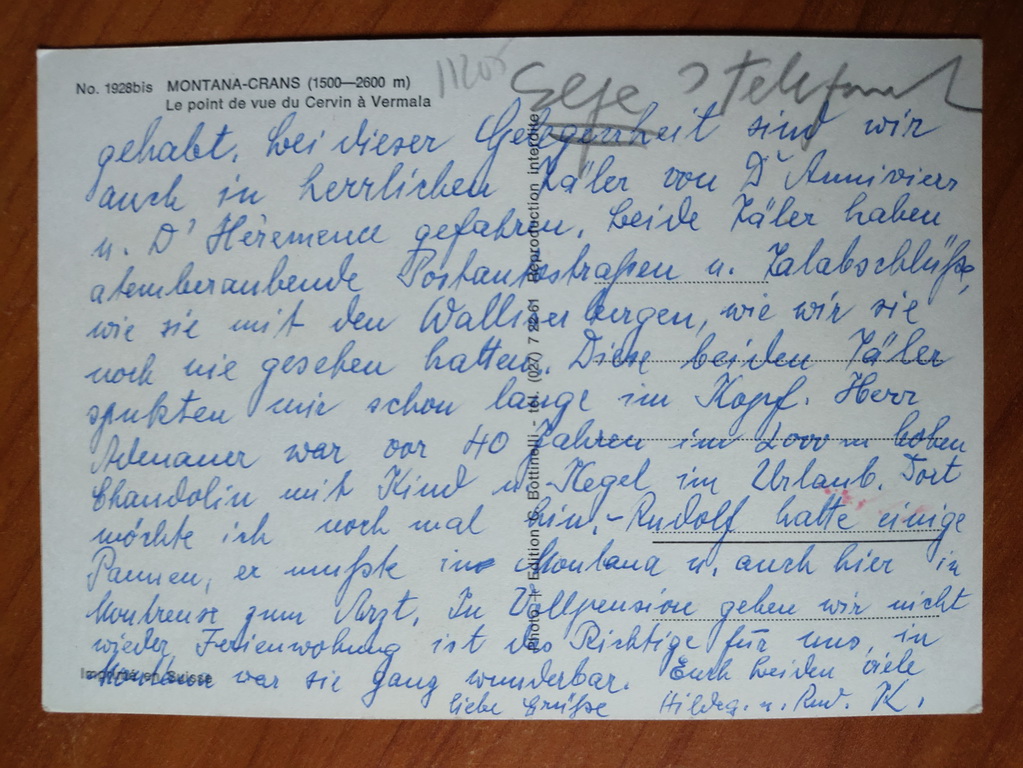 No. 1928bis MONTANA-CRANS (1500—2600 m)
Le point de vue du Cervin à Vermala
11205
gehabt. Bei dieser Gelegenheit sind wir
auch in herrlichen Täler von D'Anniviers
u. D'Hèremence gefahren. Beide Täler haben
atemberaubende Postautostraßen u. Talabschlüße,
wie sie mit den Walliser bergen, wie wir sie
noch nie gesehen hatten. Diese beiden Täler
spukten mir schon lange im Kopf. Herr
Adenauer war vor 40 Jahren im 2000 m hohen
Chandolin mit Kind u. Kegel im Urlaub. Dort
möchte ich noch mal hin. - Rudolf hatte einige
Pannen, er mußte in Montana u. auch hier in
Montreux zum Arzt. In Vollpension gehen wir nicht
wieder, Ferienwohnung ist das Richtige für uns, in
war sie ganz wunderbar. Euch beiden viele
liebe Grüße Hildeg. u. Rud. K.
Photo + Edition S. Bottinelli - tél. (027) Reproduction interdite
Imprimé en Suisse